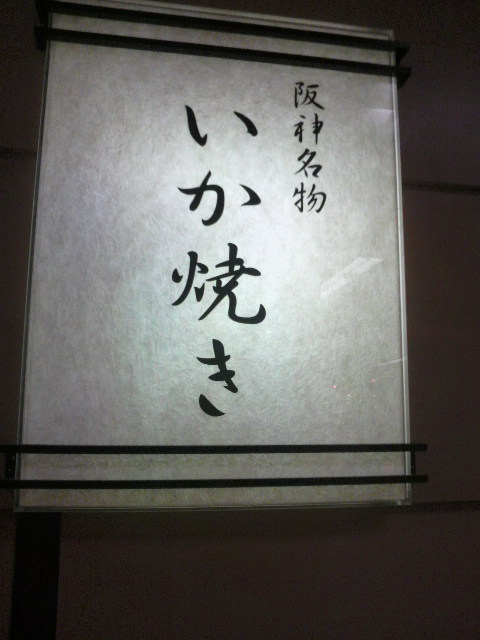 阪神名物
いか焼き